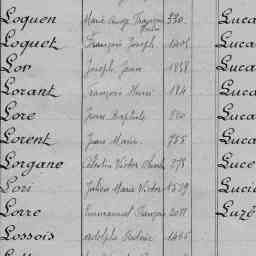 Loquen Marie Ange François 330 Luca
Loquet François Joseph Luca
Lor Joseph Jean 1858 Luca
Lorant François Henri 184 Luca
Lore Jean Baptiste Luca
Lorent Jean Marie 755 Luca
Lorgane Célestin Victor 278 Luce
Lori Julien Marie Victor 1579 Lucie
Lorre Emmanuel François 2071 Luzé
Lossois Adolphe 1465